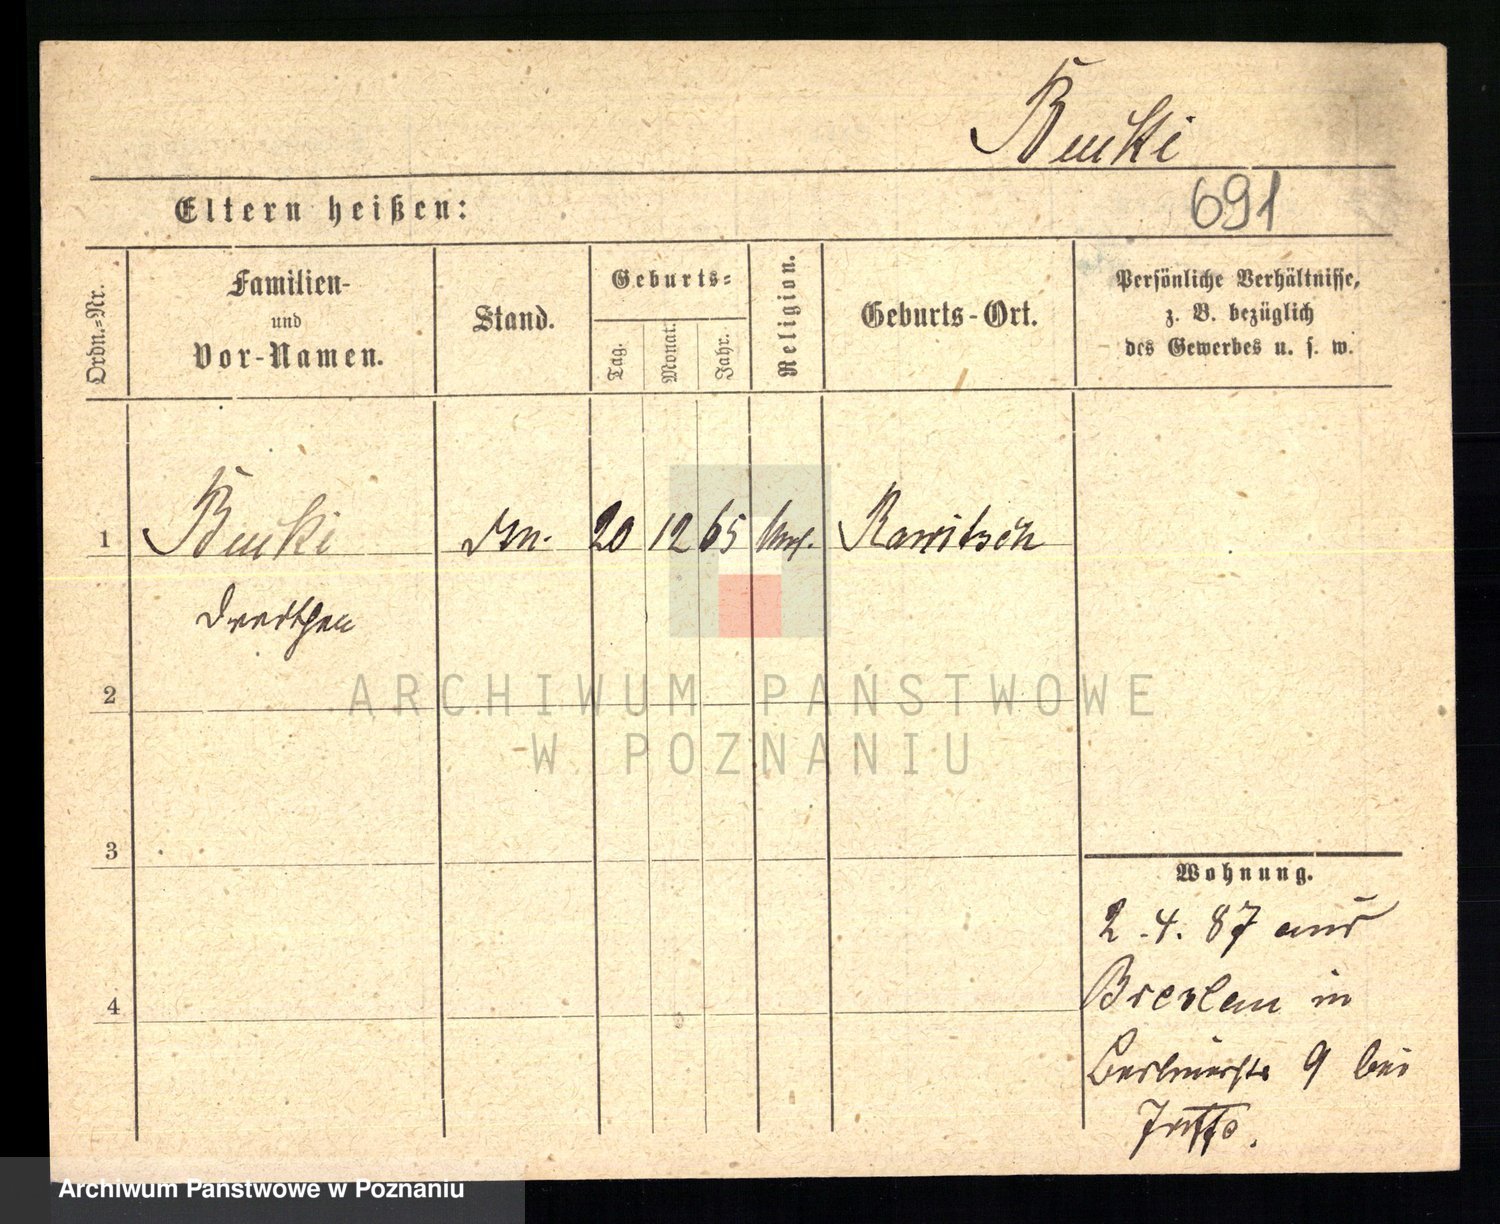 Bucki
691
Eltern heißen:
Ordn.-Nr.
Familien-
und
Vor-Namen.
Stand.
Geburts-
Tag.
Monat.
Jahr.
Religion.
Geburts-Ort.
Persönliche Verhältnisse,
z. B. bezüglich
des Gewerbes u. s. w.
1
Bucki
20
12
65
Rawitsch
2
3
4
Wohnung.
2.4.87 aus
Breslau in
9 bei
ARCHIWUM PAŃSTWOWE
W POZNANIU
Archiwum Państwowe w Poznaniu